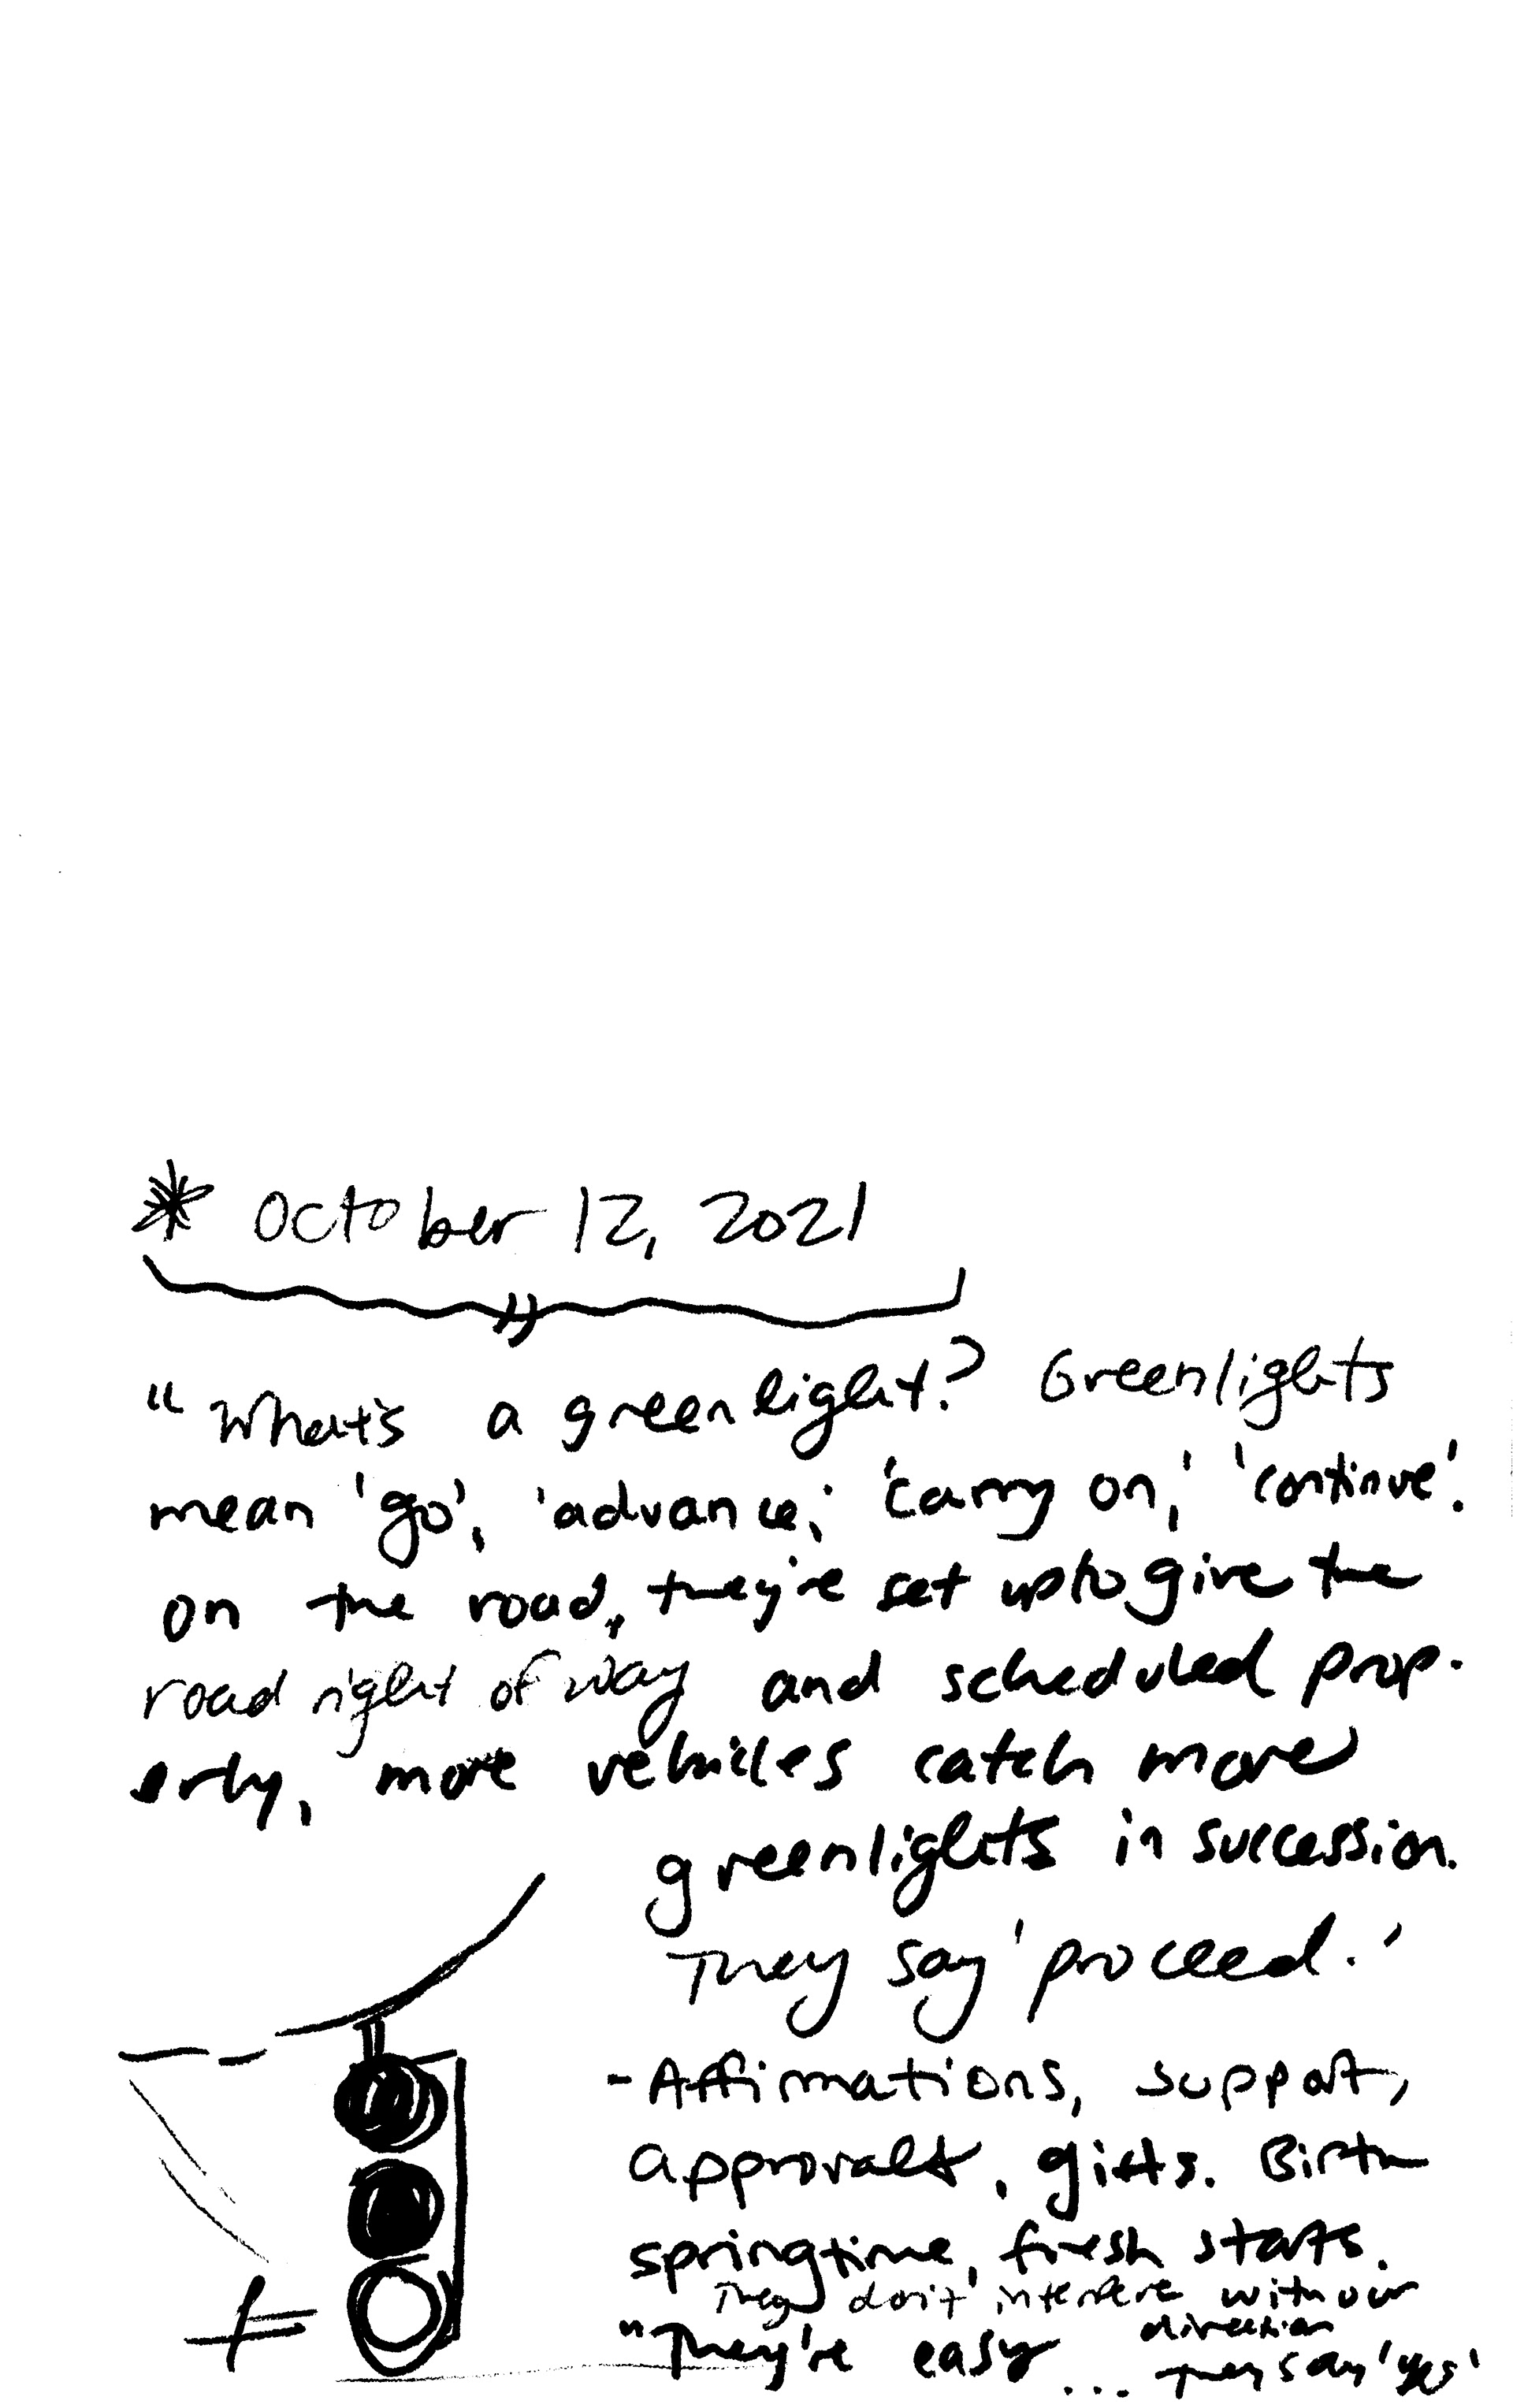 * October 12, 2021
"What's a greenlight? Greenlights
mean 'go', 'advance,' 'carry on,' 'continue'.
on the road, they're set up to give the
road right of way and scheduled prop-
erly, more vehicles catch more
greenlights in succession.
They say 'proceed.'
- Affirmations, support,
approvals, gifts. Birth
springtime, fresh starts.
They don't interfere with our
direction
"They're easy ... They say 'yes'